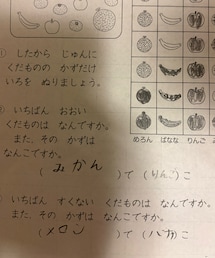 ① したから じゅんに
くだものの かずだけ
いろを ぬりましょう。
めろん ばなな りんご
いちばん おおい
くだものは なんですか。
また、その かずは
なんこですか。
(みかん)で(りんご)こ
いちばん すくない くだものは
なんですか。また、その かずは
なんこですか。
(メロン)で(バナナ)こ